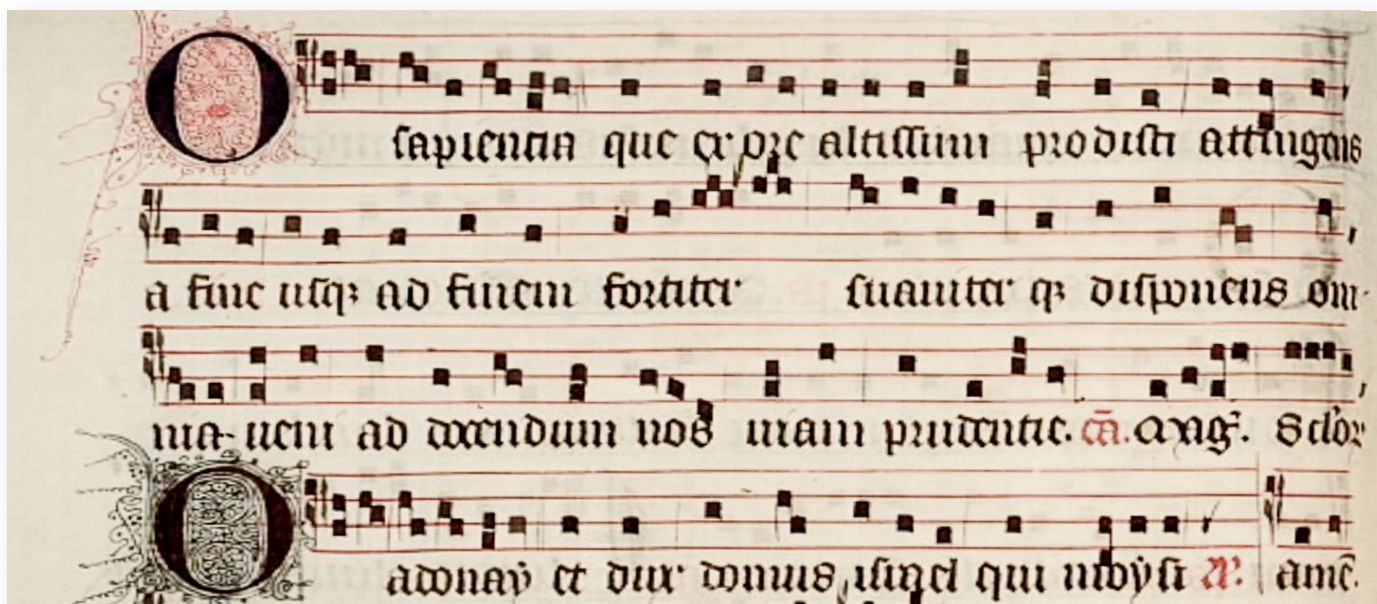 O sapientia que ex ore altissimi prodisti attingens
a fine usqꝫ ad finem fortiter suauiter qꝫ disponens om-
nia- ueni ad docendum nos uiam prudentie. cā. Mag̃. Sclor̃
O adonay et dux domus israel qui moysi R̃. amē.